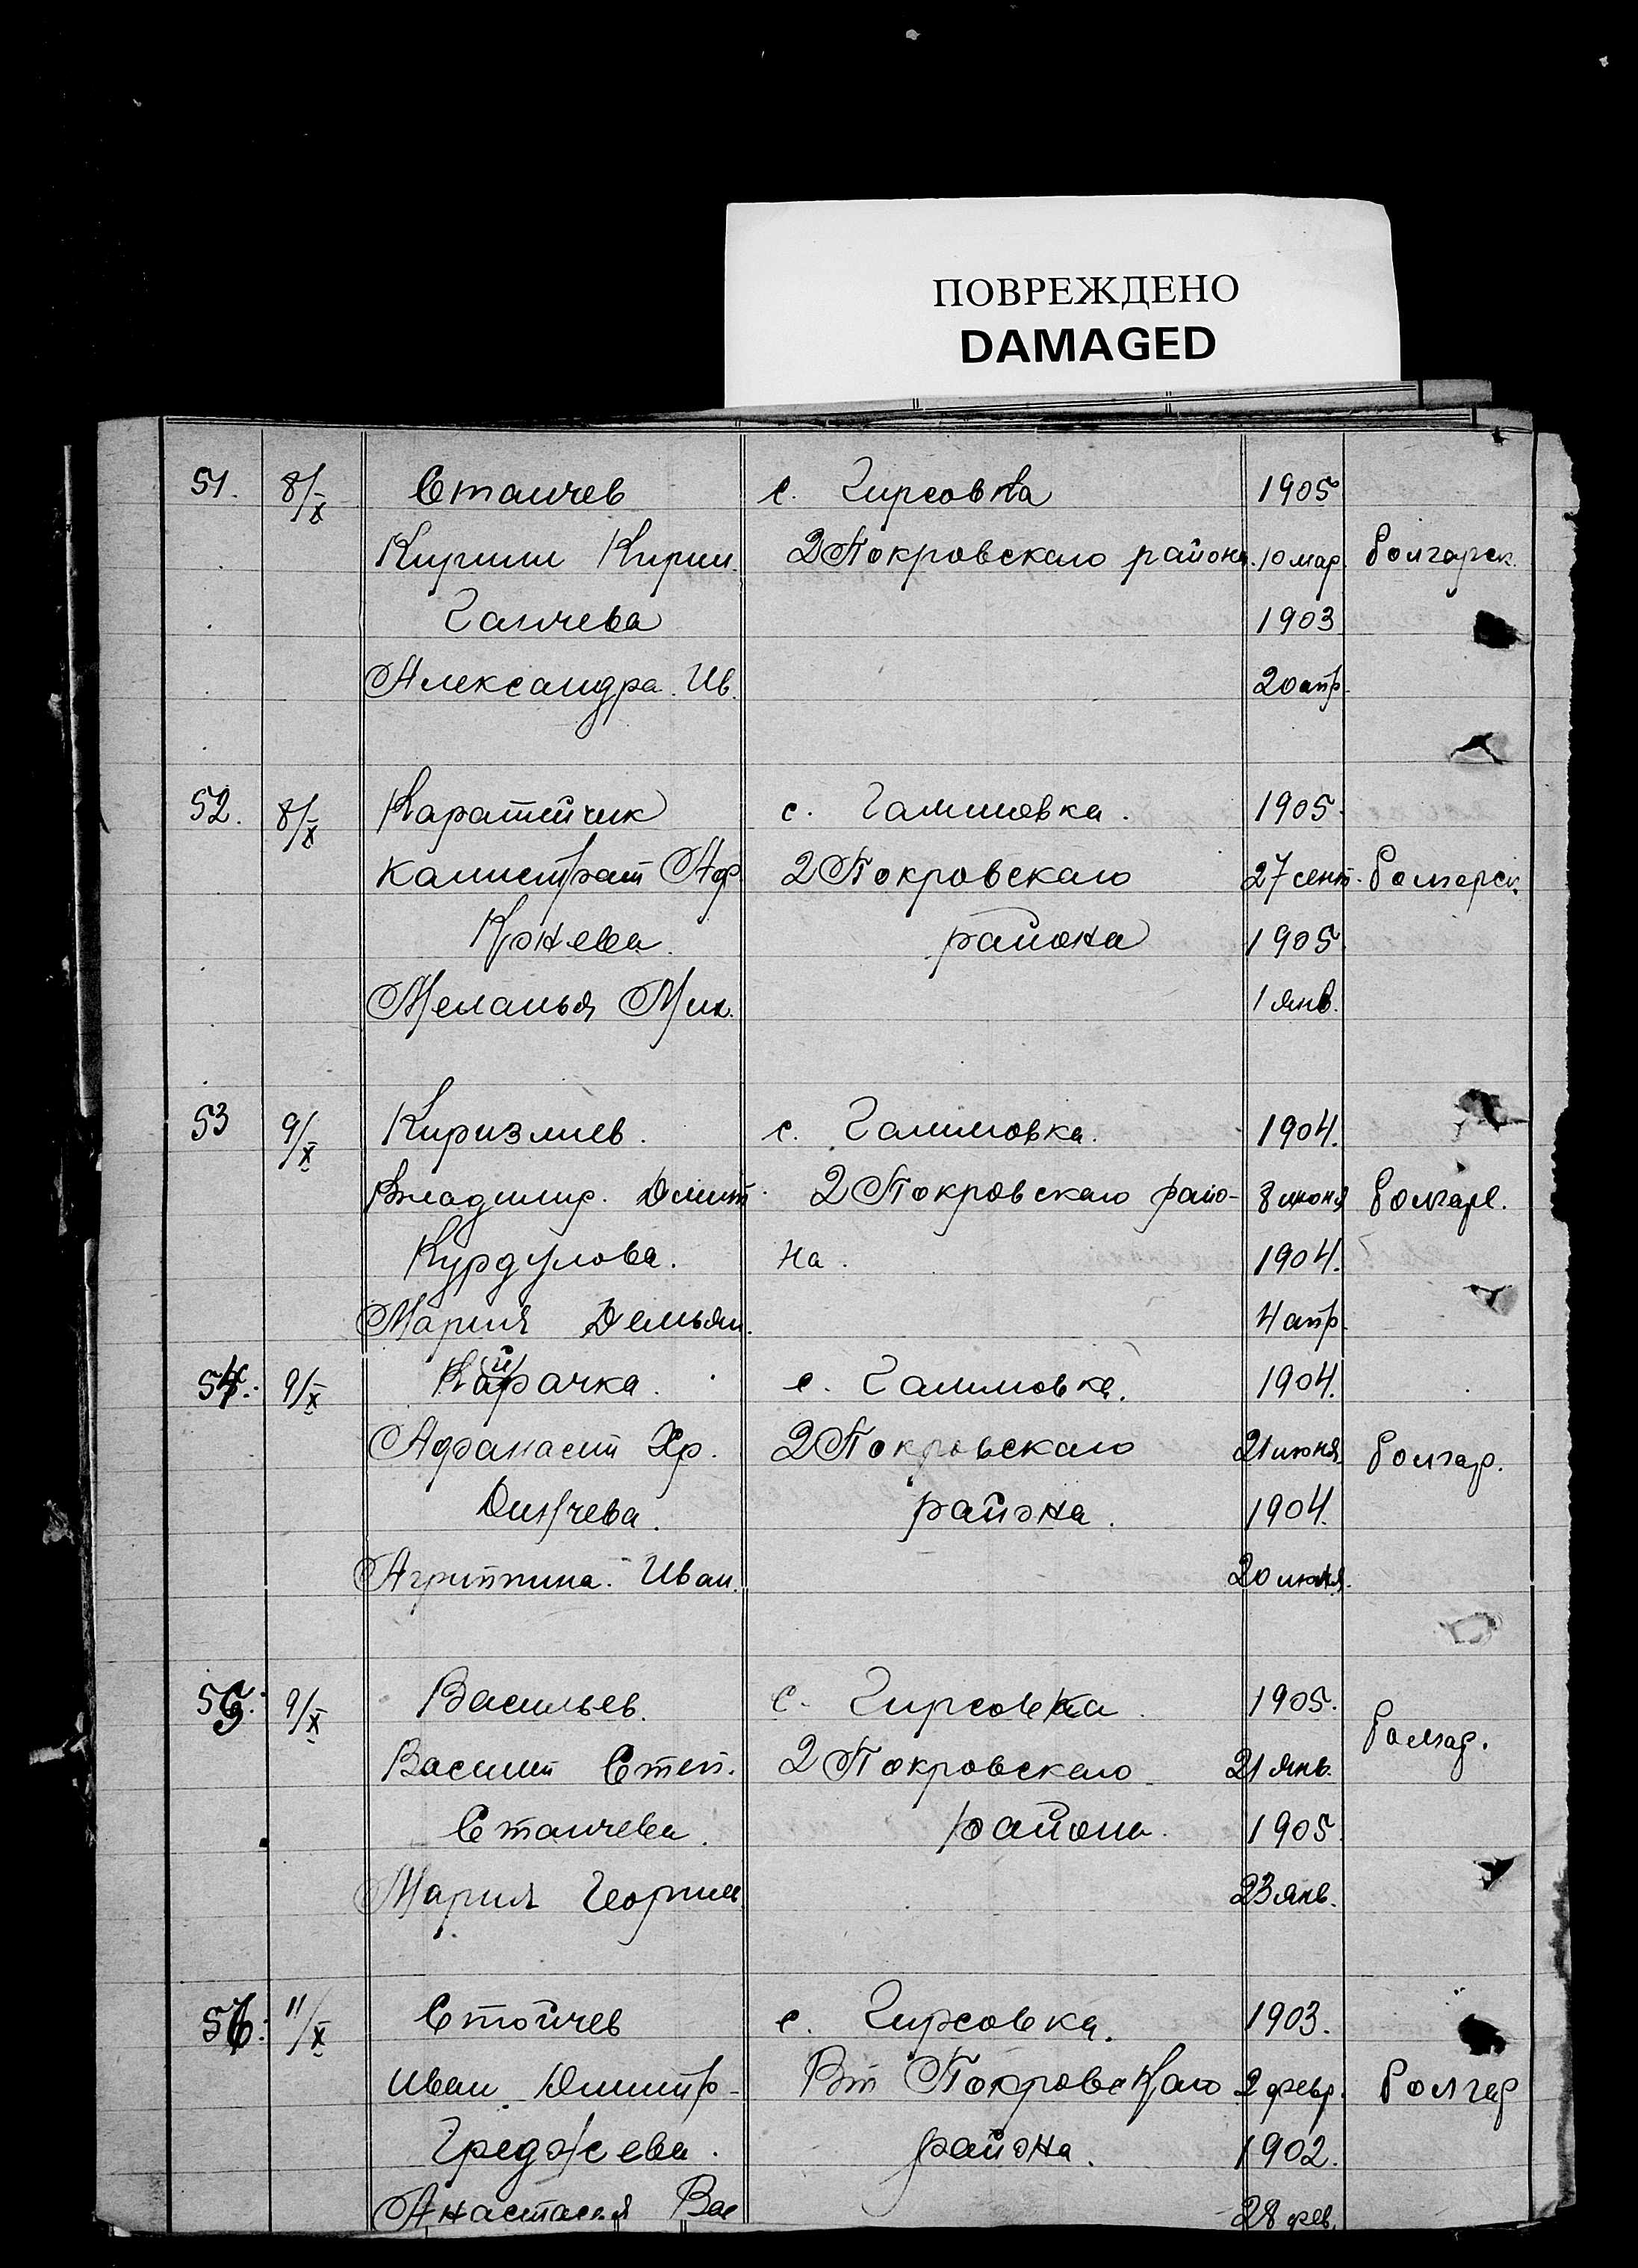 ПОВРЕЖДЕНО
DAMAGED
51. 8/X Станчев с. Гирсовка 1905
Кирилл Кирил. 2 Покровского района. 10 мар. болгарск.
Ганчева 1903
Александра. Ив. 20 апр.
52. 8/X Каратейчик с. Галиловка. 1905.
Калистрат Аф. 2 Покровского 27 сент. болгарск.
Кэнева. района 1905.
Меланья Мих. 1 янв.
53 9/X Киризлиев. с. Галиловка. 1904.
Владимир. Дмит. 2 Покровского райо- 8 июня болгарс.
Курдулова. на. 1904.
Мария Демьян. 4 апр.
54. 9/X Кайрачка. с. Галиловка. 1904.
Афанасий Хр. 2 Покровского 21 июня болгар.
Динчева. района. 1904.
Агриппина. Иван. 20
55. 9/X Васильев. с. Гирсовка. 1905.
болгар.
Василий Степ. 2 Покровского 21 янв.
Станчева. района. 1905.
Мария Георгиев 23 янв.
56. 11/X Стойчев с. Гирсовка. 1903.
Иван Димитр- Вт Покровского 2 февр. болгар
Греджева. района. 1902.
Анастасия Вас 28 фев.